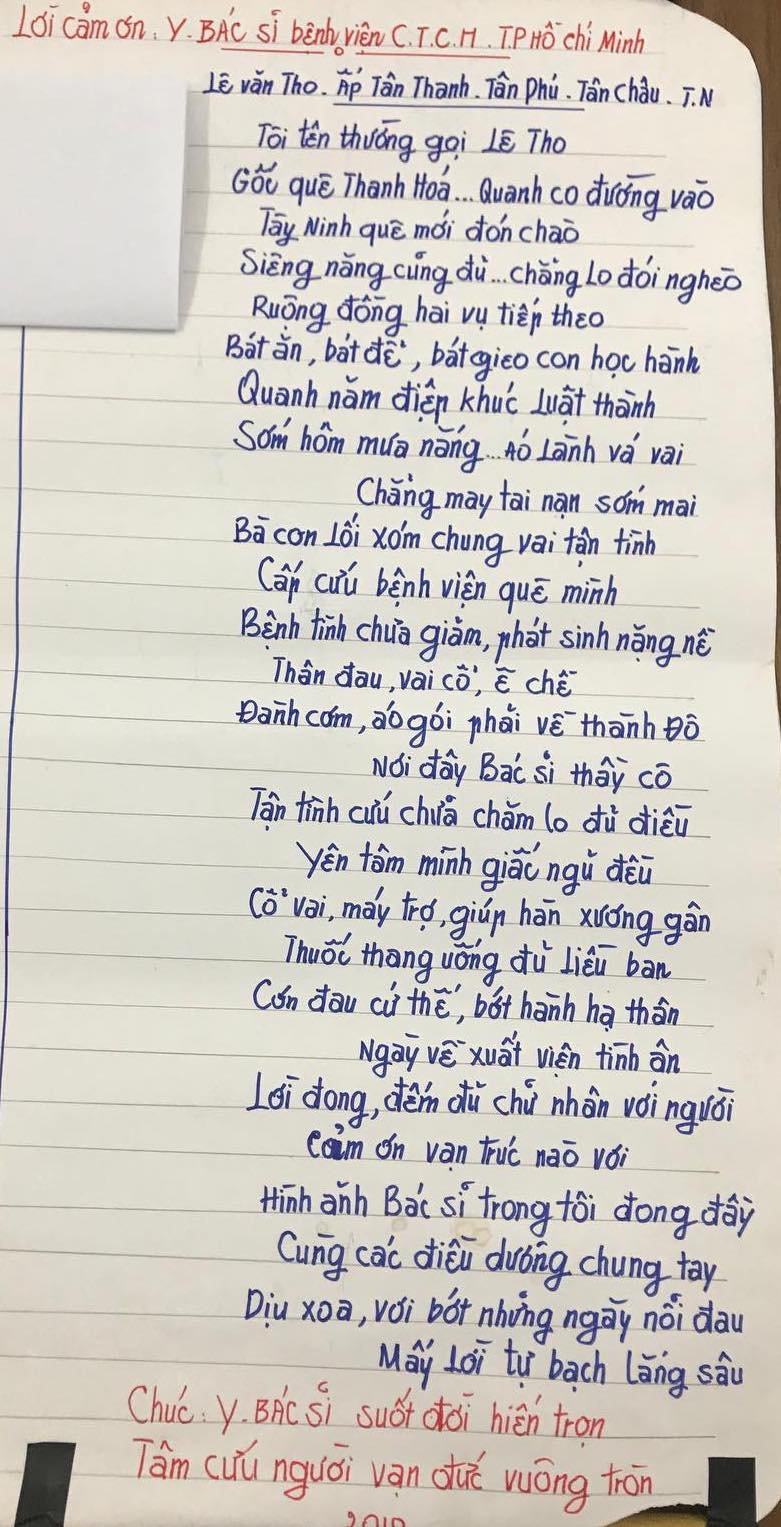 Lời cảm ơn. Y. BÁC sĩ bệnh viện C.T.C.H. T.P Hồ chí Minh
Lê văn Tho. Ấp Tân Thanh. Tân Phú. Tân Châu. T.N
Tôi tên thường gọi Lê Tho
Gốc quê Thanh Hoá... Quanh co đường vào
Tây Ninh quê mới đón chào
Siêng năng cũng đủ... chẳng Lo đói nghèo
Ruộng đồng hai vụ tiếp theo
Bát ăn, bát để, bát gieo con học hành
Quanh năm điệp khúc Luật thành
Sớm hôm mưa nắng... Áo Lành vá vai
Chẳng may tai nạn sớm mai
Bà con Lối xóm chung vai tận tình
Cấp cứu bệnh viện quê mình
Bệnh tình chưa giảm, phát sinh nặng nề
Thân đau, vai cổ, ê chề
Đành cơm, áo gói phải về thành Đô
Nơi đây Bác sĩ thầy cô
Tận tình cứu chữa chăm lo đủ điều
Yên tâm mình giấc ngủ đều
Cổ vai, máy trợ, giúp hàn xương gân
Thuốc thang uống đủ Liều ban
Cơn đau cứ thế, bớt hành hạ thân
Ngày về xuất viện tình ân
Lời đong, đếm đủ chữ nhân với người
Cảm ơn vạn trúc nào với
Hình ảnh Bác sĩ trong tôi đong đầy
Cùng các điều dưỡng chung tay
Dịu xoa, vơi bớt những ngày nỗi đau
Mấy Lời tự bạch Lắng sâu
Chúc. Y. BÁC Sĩ suốt đời hiến trọn
Tâm cứu người vạn đức vuông tròn